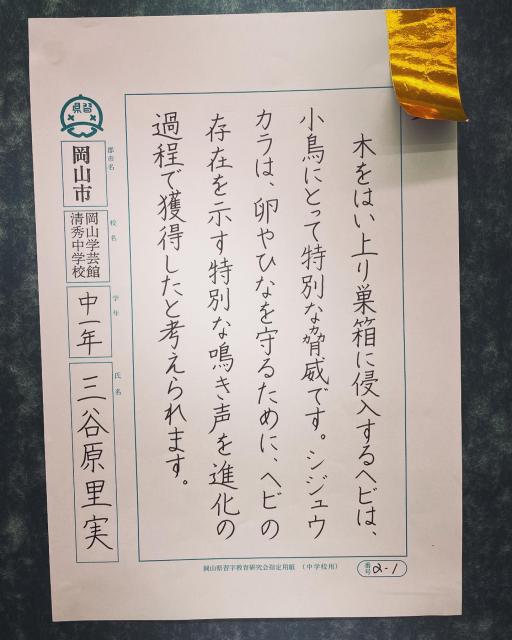 木をはい上り巣箱に侵入するヘビは、
小鳥にとって特別な脅威です。シジュウ
カラは、卵やひなを守るために、ヘビの
存在を示す特別な鳴き声を進化の
過程で獲得したと考えられます。
県習
郡市名
岡山市
校名
岡山学芸館
清秀中学校
学年
中一年
氏名
三谷原里実
岡山県習字教育研究会指定用紙 （中学校用）
番号 2-1